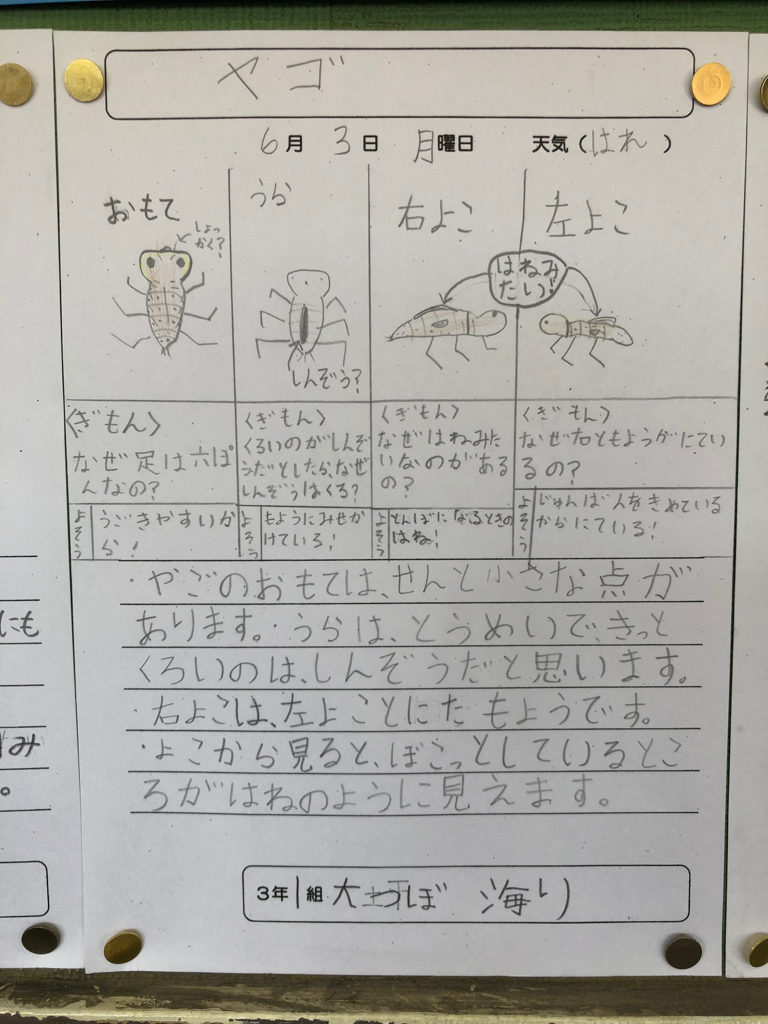 ヤゴ
6月 3日 月曜日 天気(はれ)
おもて
しょっ
かく?
うら
しんぞう?
右よこ
左よこ
はねみ
たい!
〈ぎもん〉
なぜ足は六ぽ
んなの?
よそう
うごきやすいか
ら!
〈ぎもん〉
くろいのがしんぞ
うだとしたら、なぜ
しんぞうはくろ?
よそう
もようにみせか
けている!
〈ぎもん〉
なぜはねみた
いなのがある
の?
よそう
とんぼになるときの
はね!
〈ぎもん〉
なぜ右ともようがにてい
るの?
よそう
じゅんばんをきめている
からにている!
・やごのおもては、せんと小さな点が
あります。・うらは、とうめいで、きっと
くろいのは、しんぞうだと思います。
・右よこは、左よことにたもようです。
・よこから見ると、ぼこっとしているとこ
ろがはねのように見えます。
3年1組 大 つぼ 海り
にも
み
。